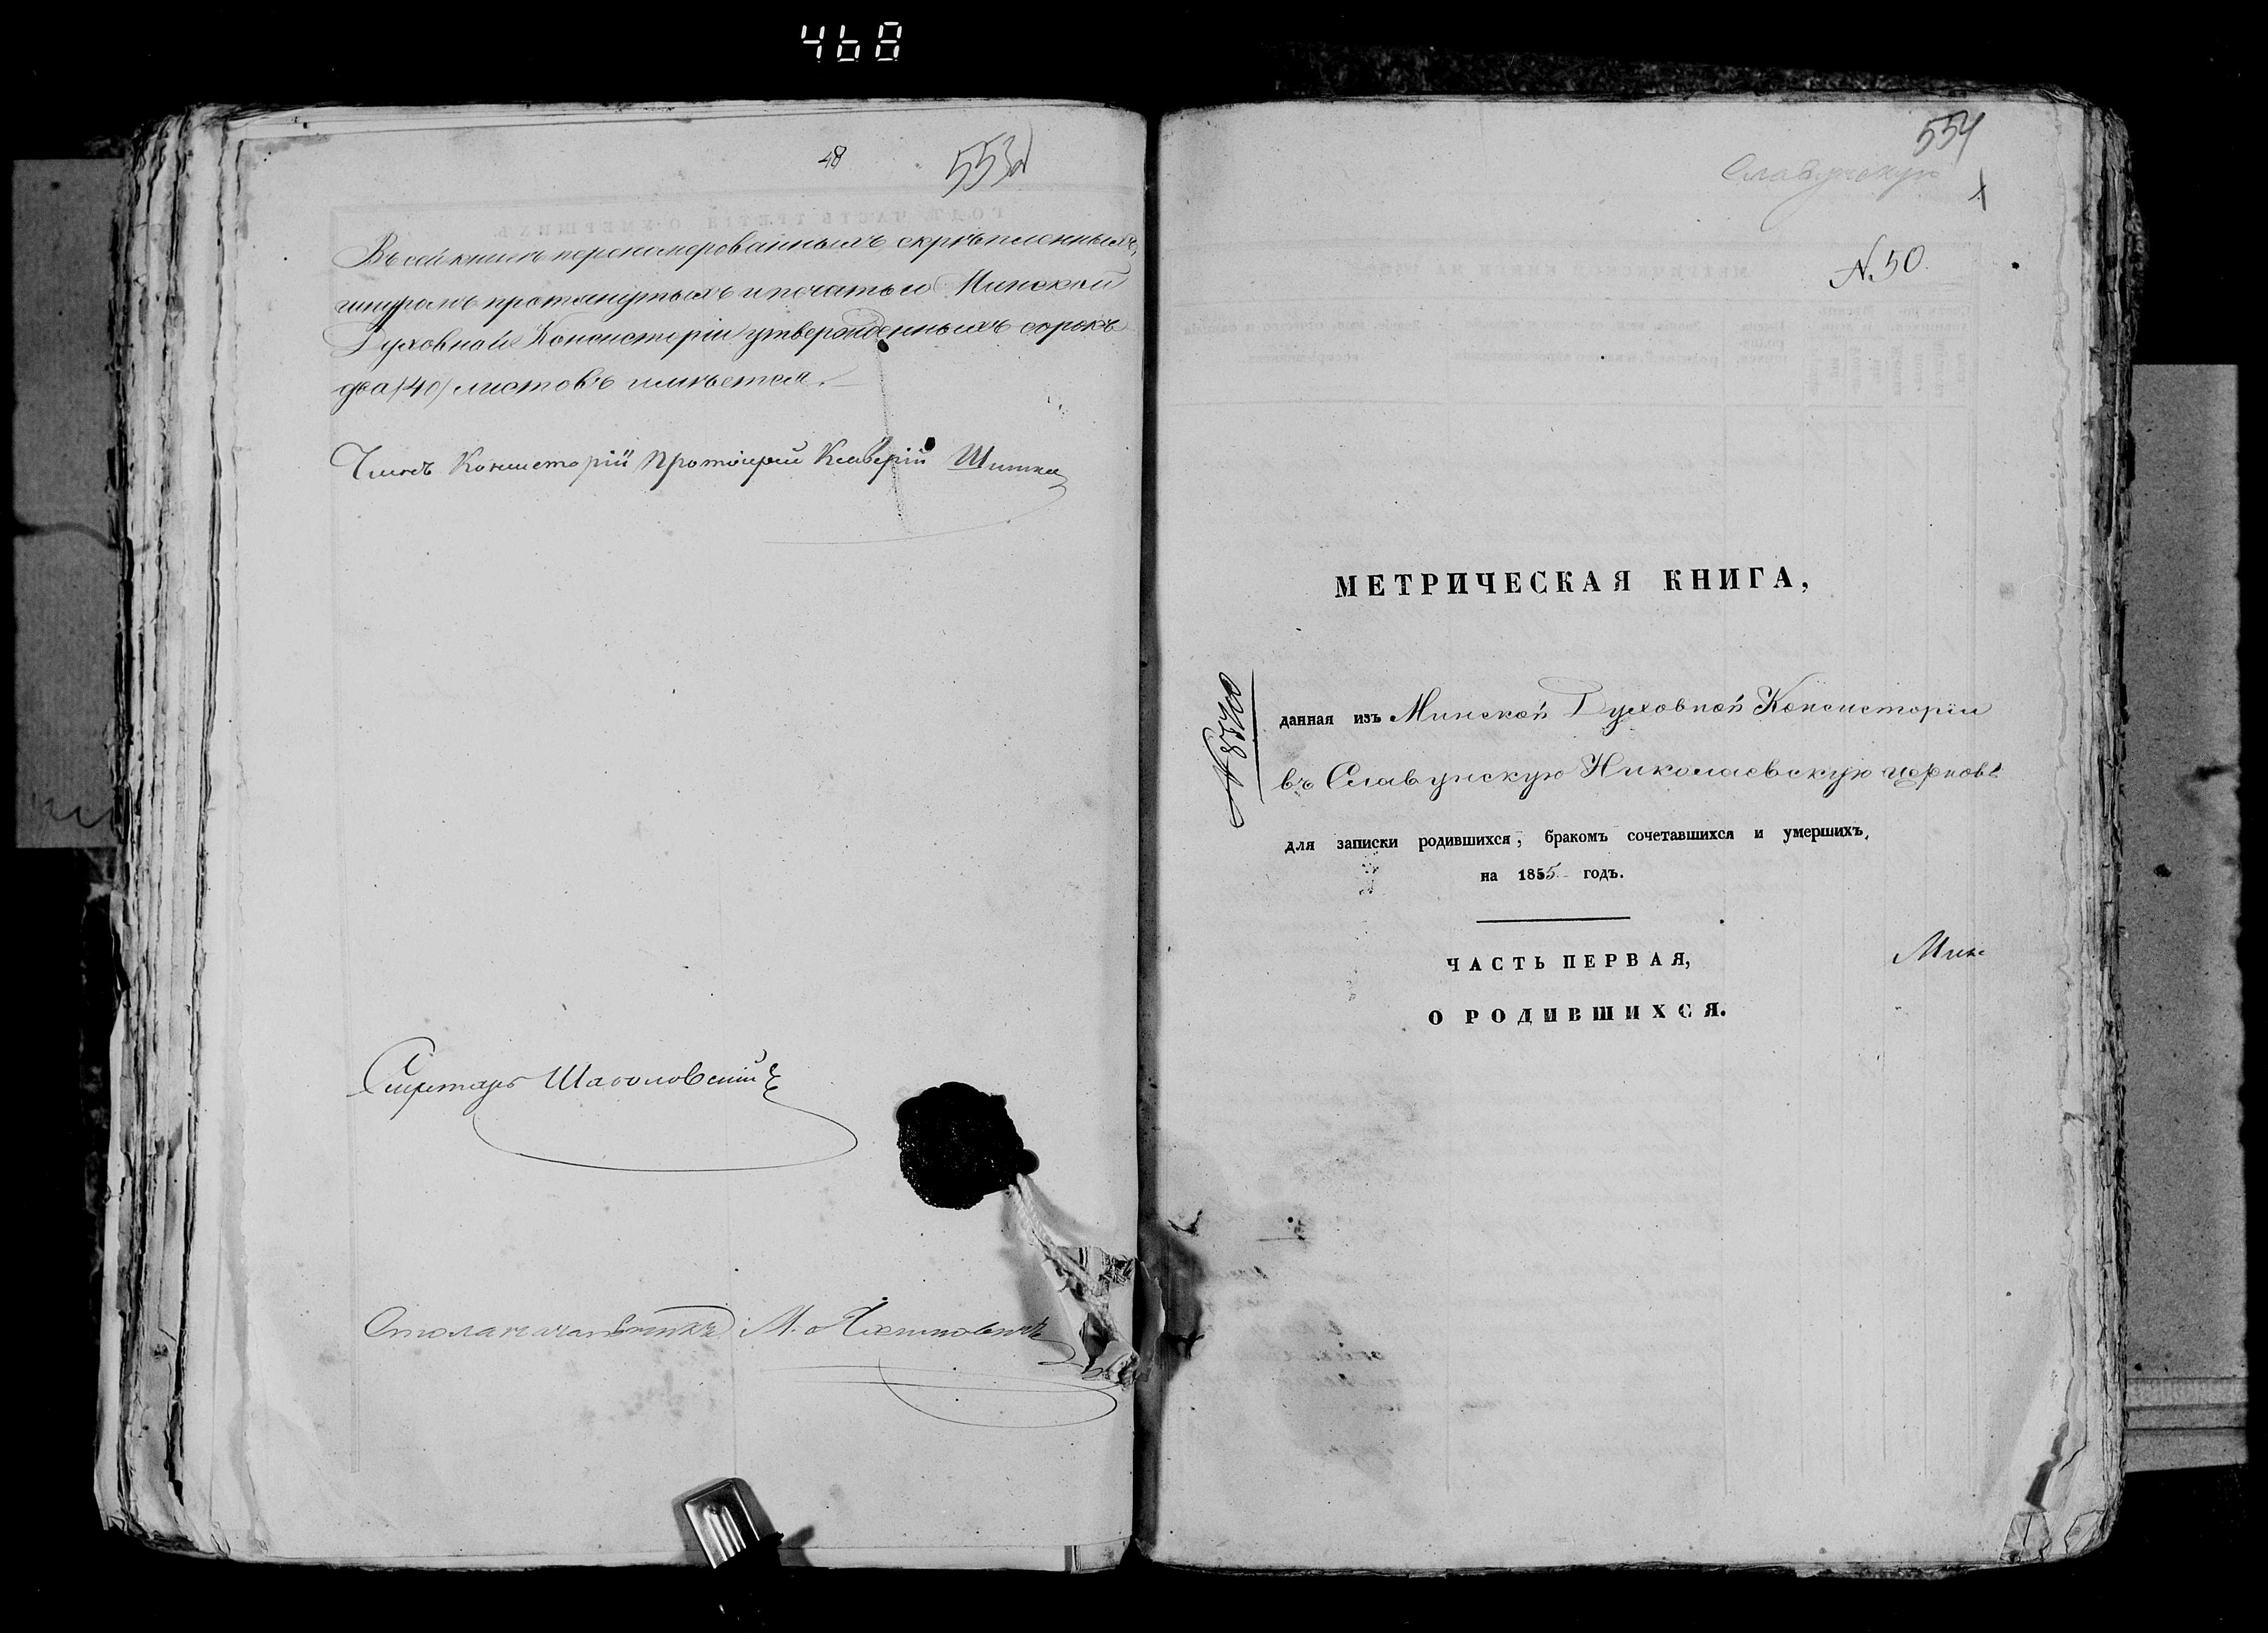 468
48
553
Въ сей книгѣ перенумерованныхъ, скрѣпленныхъ,
шнуромъ протянутыхъ и печатью Минской
Духовной Консисторіи утвержденныхъ сорокъ
два /40/ листовъ имѣется.
Членъ Консисторіи Протоіерей
Секретарь
Столоначальникъ М.
554
Славунскую
1
N. 50
МЕТРИЧЕСКАЯ КНИГА,
данная изъ Минской Духовной Консисторіи
въ Славунскую Николаевскую церковь
для записки родившихся, бракомъ сочетавшихся и умершихъ,
на 1855 годъ.
ЧАСТЬ ПЕРВАЯ,
Минс
О РОДИВШИХСЯ.